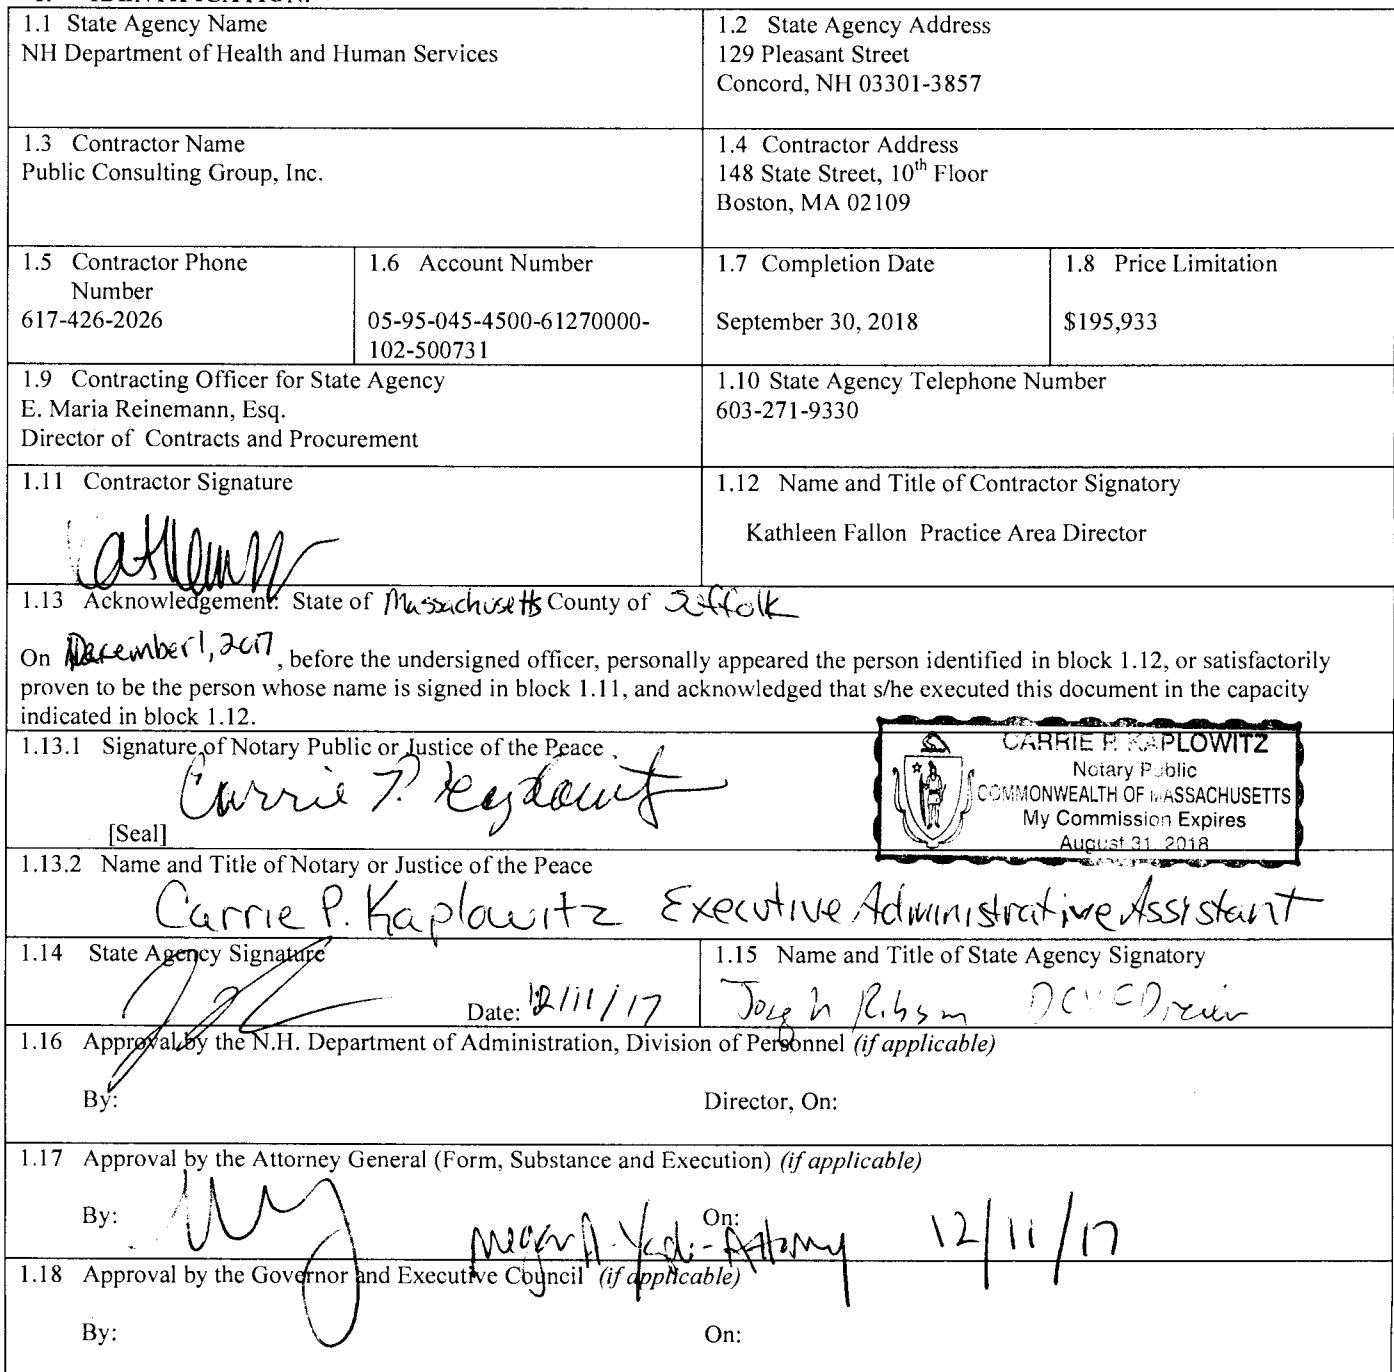 1.1 State Agency Name
NH Department of Health and Human Services
1.2 State Agency Address
129 Pleasant Street
Concord, NH 03301-3857
1.3 Contractor Name
Public Consulting Group, Inc.
1.4 Contractor Address
148 State Street, 10th Floor
Boston, MA 02109
1.5 Contractor Phone
Number
617-426-2026
1.6 Account Number
05-95-045-4500-61270000-
102-500731
1.7 Completion Date
September 30, 2018
1.8 Price Limitation
$195,933
1.9 Contracting Officer for State Agency
E. Maria Reinemann, Esq.
Director of Contracts and Procurement
1.10 State Agency Telephone Number
603-271-9330
1.11 Contractor Signature
1.12 Name and Title of Contractor Signatory
Kathleen Fallon Practice Area Director
1.13 Acknowledgement: State of Massachusetts County of Suffolk
On December 1, 2017, before the undersigned officer, personally appeared the person identified in block 1.12, or satisfactorily
proven to be the person whose name is signed in block 1.11, and acknowledged that s/he executed this document in the capacity
indicated in block 1.12.
1.13.1 Signature of Notary Public or Justice of the Peace
Carrie P. Kaplowitz
[Seal]
CARRIE P. KAPLOWITZ
Notary Public
COMMONWEALTH OF MASSACHUSETTS
My Commission Expires
August 31, 2018
1.13.2 Name and Title of Notary or Justice of the Peace
Carrie P. Kaplowitz Executive Administrative Assistant
1.14 State Agency Signature
Date: 12/11/17
1.15 Name and Title of State Agency Signatory
Joseph Ribsam
1.16 Approval by the N.H. Department of Administration, Division of Personnel (if applicable)
By:
Director, On:
1.17 Approval by the Attorney General (Form, Substance and Execution) (if applicable)
By:
On:
Megan A. - Attorney 12/11/17
1.18 Approval by the Governor and Executive Council (if applicable)
By:
On: